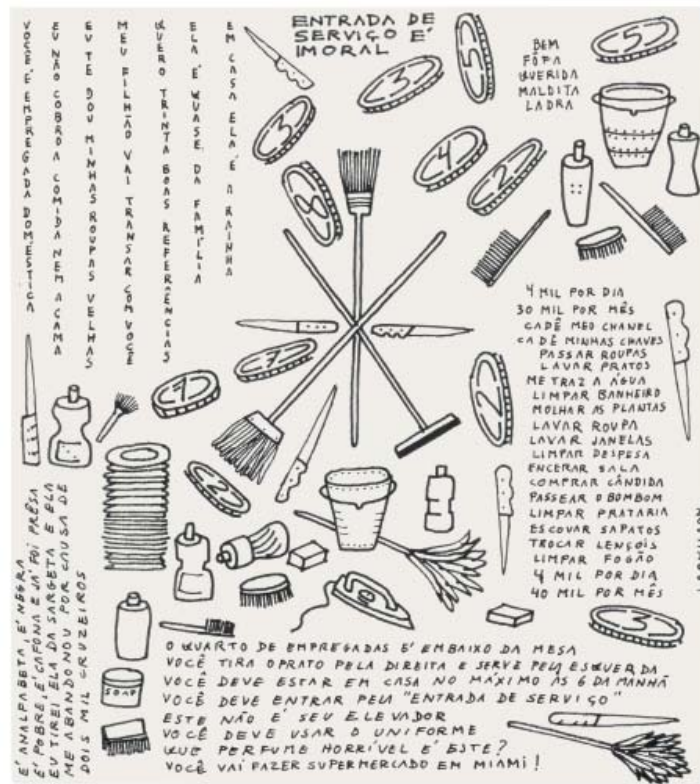 VOCÊ É EMPREGADA DOMÉSTICA
EU NÃO COBRO A COMIDA NEM A CAMA
EU TE DOU MINHAS ROUPAS VELHAS
MEU FILHÃO VAI TRANSAR COM VOCÊ
QUERO TRINTA BOAS REFERÊNCIAS
ELA É QUASE DA FAMÍLIA
EM CASA ELA É A RAINHA
ENTRADA DE
SERVIÇO E'
IMORAL
BEM
FÔFA
QUERIDA
MALDITA
LADRA
5
5
3
3
4
2
8
1
1
2
2
3
4 MIL POR DIA
30 MIL POR MÊS
CADÊ MEO CHANEL
CADÊ MINHAS CHAVES
PASSAR ROUPAS
LAVAR PRATOS
ME TRAZ A ÁGUA
LIMPAR BANHEIRO
MOLHAR AS PLANTAS
LAVAR ROUPA
LAVAR JANELAS
LIMPAR DESPESA
ENCERAR SALA
COMPRAR CÂNDIDA
PASSEAR O BOMBOM
LIMPAR PRATARIA
ESCOVAR SAPATOS
TROCAR LENÇOIS
LIMPAR FOGÃO
4 MIL POR DIA
40 MIL POR MÊS
E' ANALFABETA, E' NEGRA
E' POBRE, E' CAFONA E JA' FOI PRÊSA
EU TIREI ELA DA SARGETA E ELA
ME ABANDONOU POR CAUSA DE
DOIS MIL CRUZEIROS
SOAP
O QUARTO DE EMPREGADAS E' EMBAIXO DA MESA
VOCÊ TIRA O PRATO PELA DIREITA E SERVE PELA ESQUERDA
VOCÊ DEVE ESTAR EM CASA NO MÁXIMO ÀS 6 DA MANHÃ
VOCÊ DEVE ENTRAR PELA "ENTRADA DE SERVIÇO"
ESTE NÃO E' SEU ELEVADOR
VOCÊ DEVE USAR O UNIFORME
QUE PERFUME HORRÍVEL E' ESTE?
VOCÊ VAI FAZER SUPERMERCADO EM MIAMI!